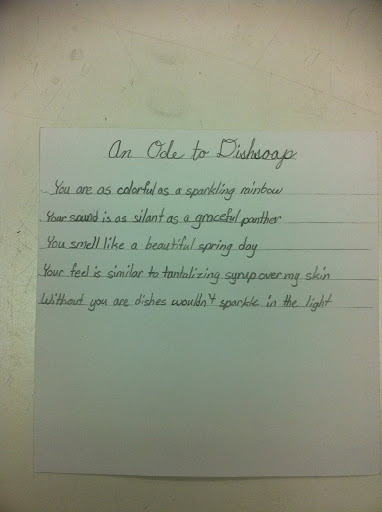 An Ode to Dishsoap
You are as colorful as a sparkling rainbow
Your sound is as silant as a graceful panther
You smell like a beautiful spring day
Your feel is similar to tantalizing syrup over my skin
Without you are dishes wouldn't sparkle in the light